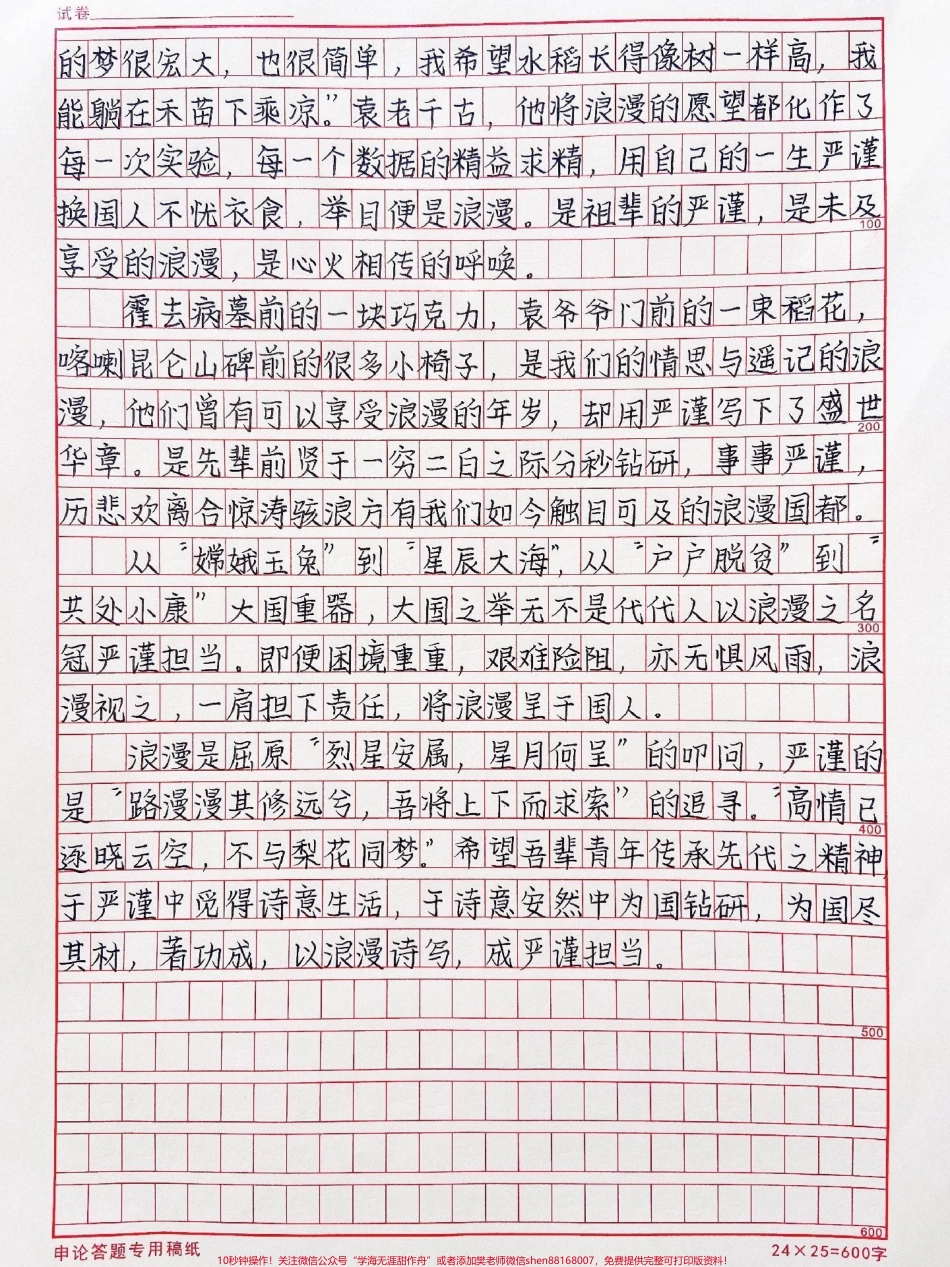 试卷
的梦很宏大，也很简单，我希望水稻长得像树一样高，我
能躺在禾苗下乘凉。”袁老千古，他将浪漫的愿望都化作了
每一次实验，每一个数据的精益求精，用自己的一生严谨
换国人不忧衣食，举目便是浪漫。是祖辈的严谨，是未及
100
享受的浪漫，是心火相传的呼唤。
霍去病墓前的一块巧克力，袁爷爷门前的一束稻花，
喀喇昆仑山碑前的很多小椅子，是我们的情思与遥记的浪
漫，他们曾有可以享受浪漫的年岁，却用严谨写下了盛世
200
华章。是先辈前贤于一穷二白之际分秒钻研，事事严谨，
历悲欢离合惊涛骇浪方有我们如今触目可及的浪漫国都。
从“嫦娥玉兔”到“星辰大海”，从“户户脱贫”到“
共处小康”大国重器，大国之举无不是代代人以浪漫之名
300
冠严谨担当。即便困境重重，艰难险阻，亦无惧风雨，浪
漫视之，一肩担下责任，将浪漫呈于国人。
浪漫是屈原“烈星安属，星月何呈”的叩问，严谨的
是“路漫漫其修远兮，吾将上下而求索”的追寻。“高情已
400
逐晓云空，不与梨花同梦。”希望吾辈青年传承先代之精神，
于严谨中觅得诗意生活，于诗意安然中为国钻研，为国尽
其材，著功成，以浪漫诗写，成严谨担当。
500
600
申论答题专用稿纸
24×25=600字
10秒钟操作！关注微信公众号“学海无涯甜作舟”或者添加樊老师微信shen88168007，免费提供完整可打印版资料！